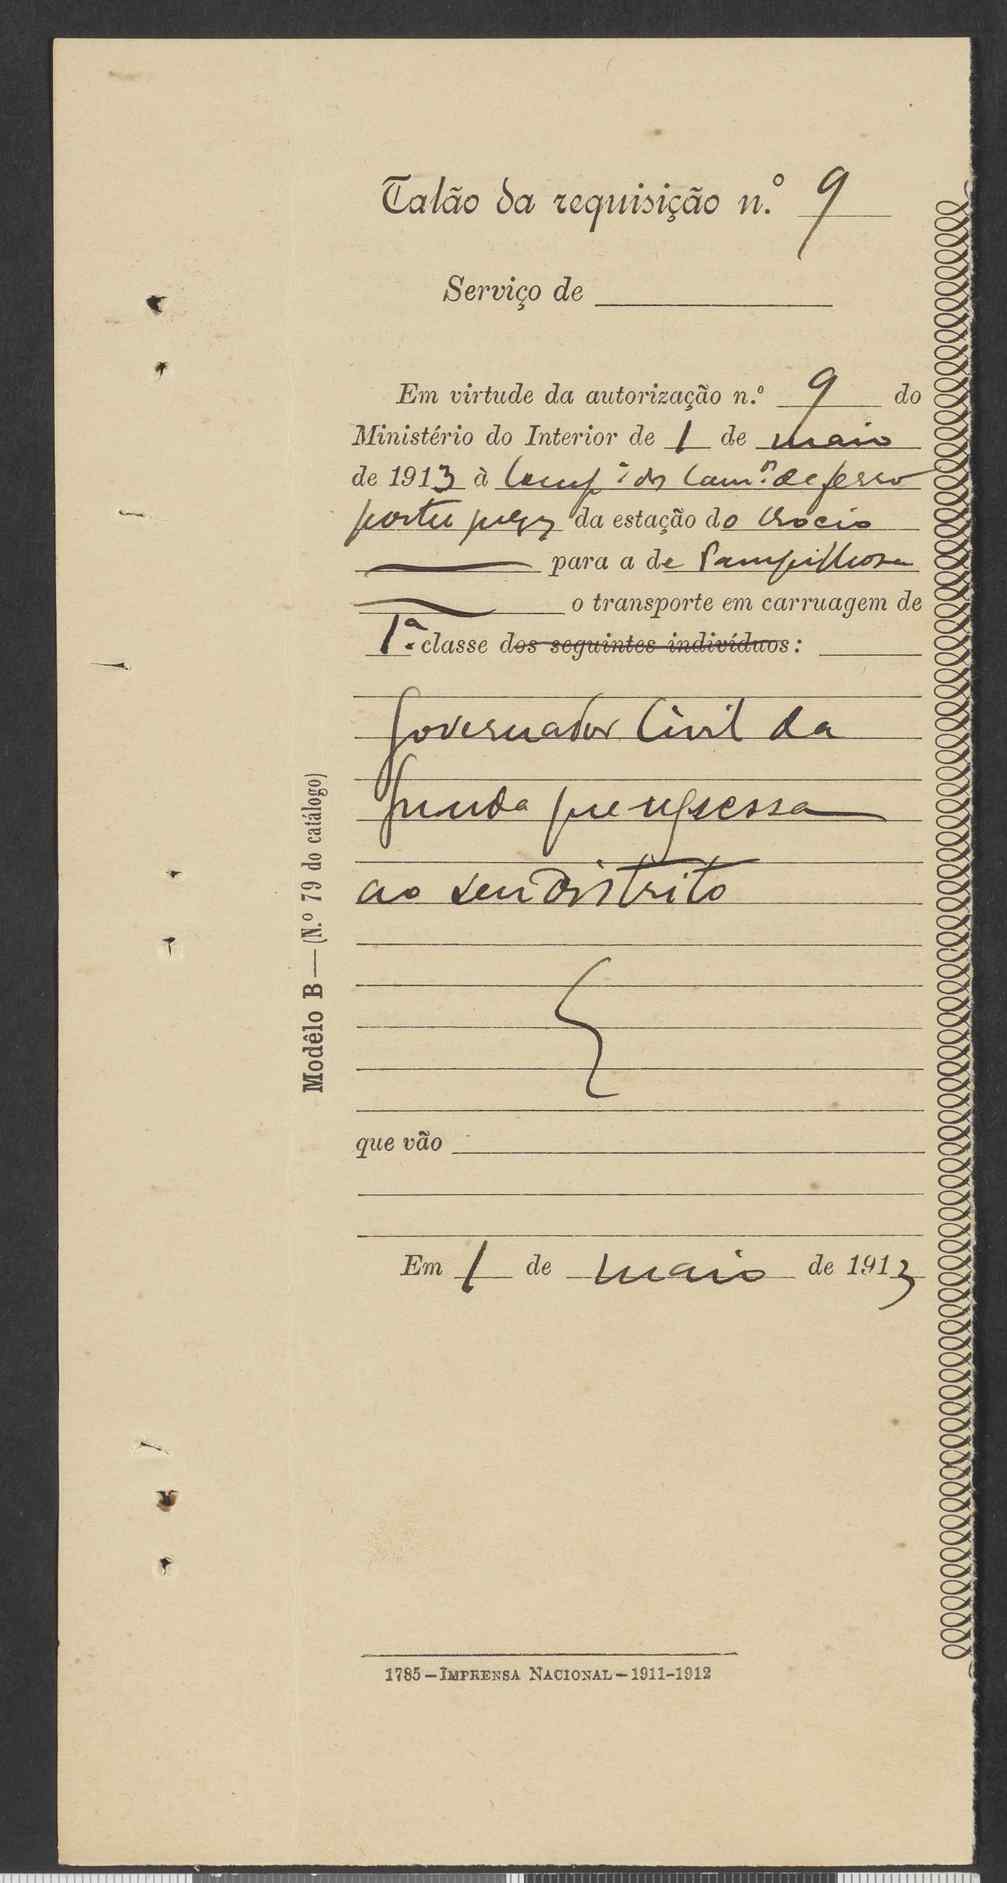 Talão da requisição n.º 9
Serviço de
Em virtude da autorização n.º 9 do
Ministério do Interior de 1 de maio
de 1913 à Comp.ª dos Cam.ºs de ferro
portuguezes da estação do Rocio
para a de Pampilhosa
o transporte em carruagem de
1.ª classe dos seguintes indivíduos:
Governador Civil da
Guarda que regressa
ao seu Districto
que vão
Em 1 de maio de 1913
Modêlo B — (N.º 79 do catálogo)
1785 — IMPRENSA NACIONAL — 1911-1912